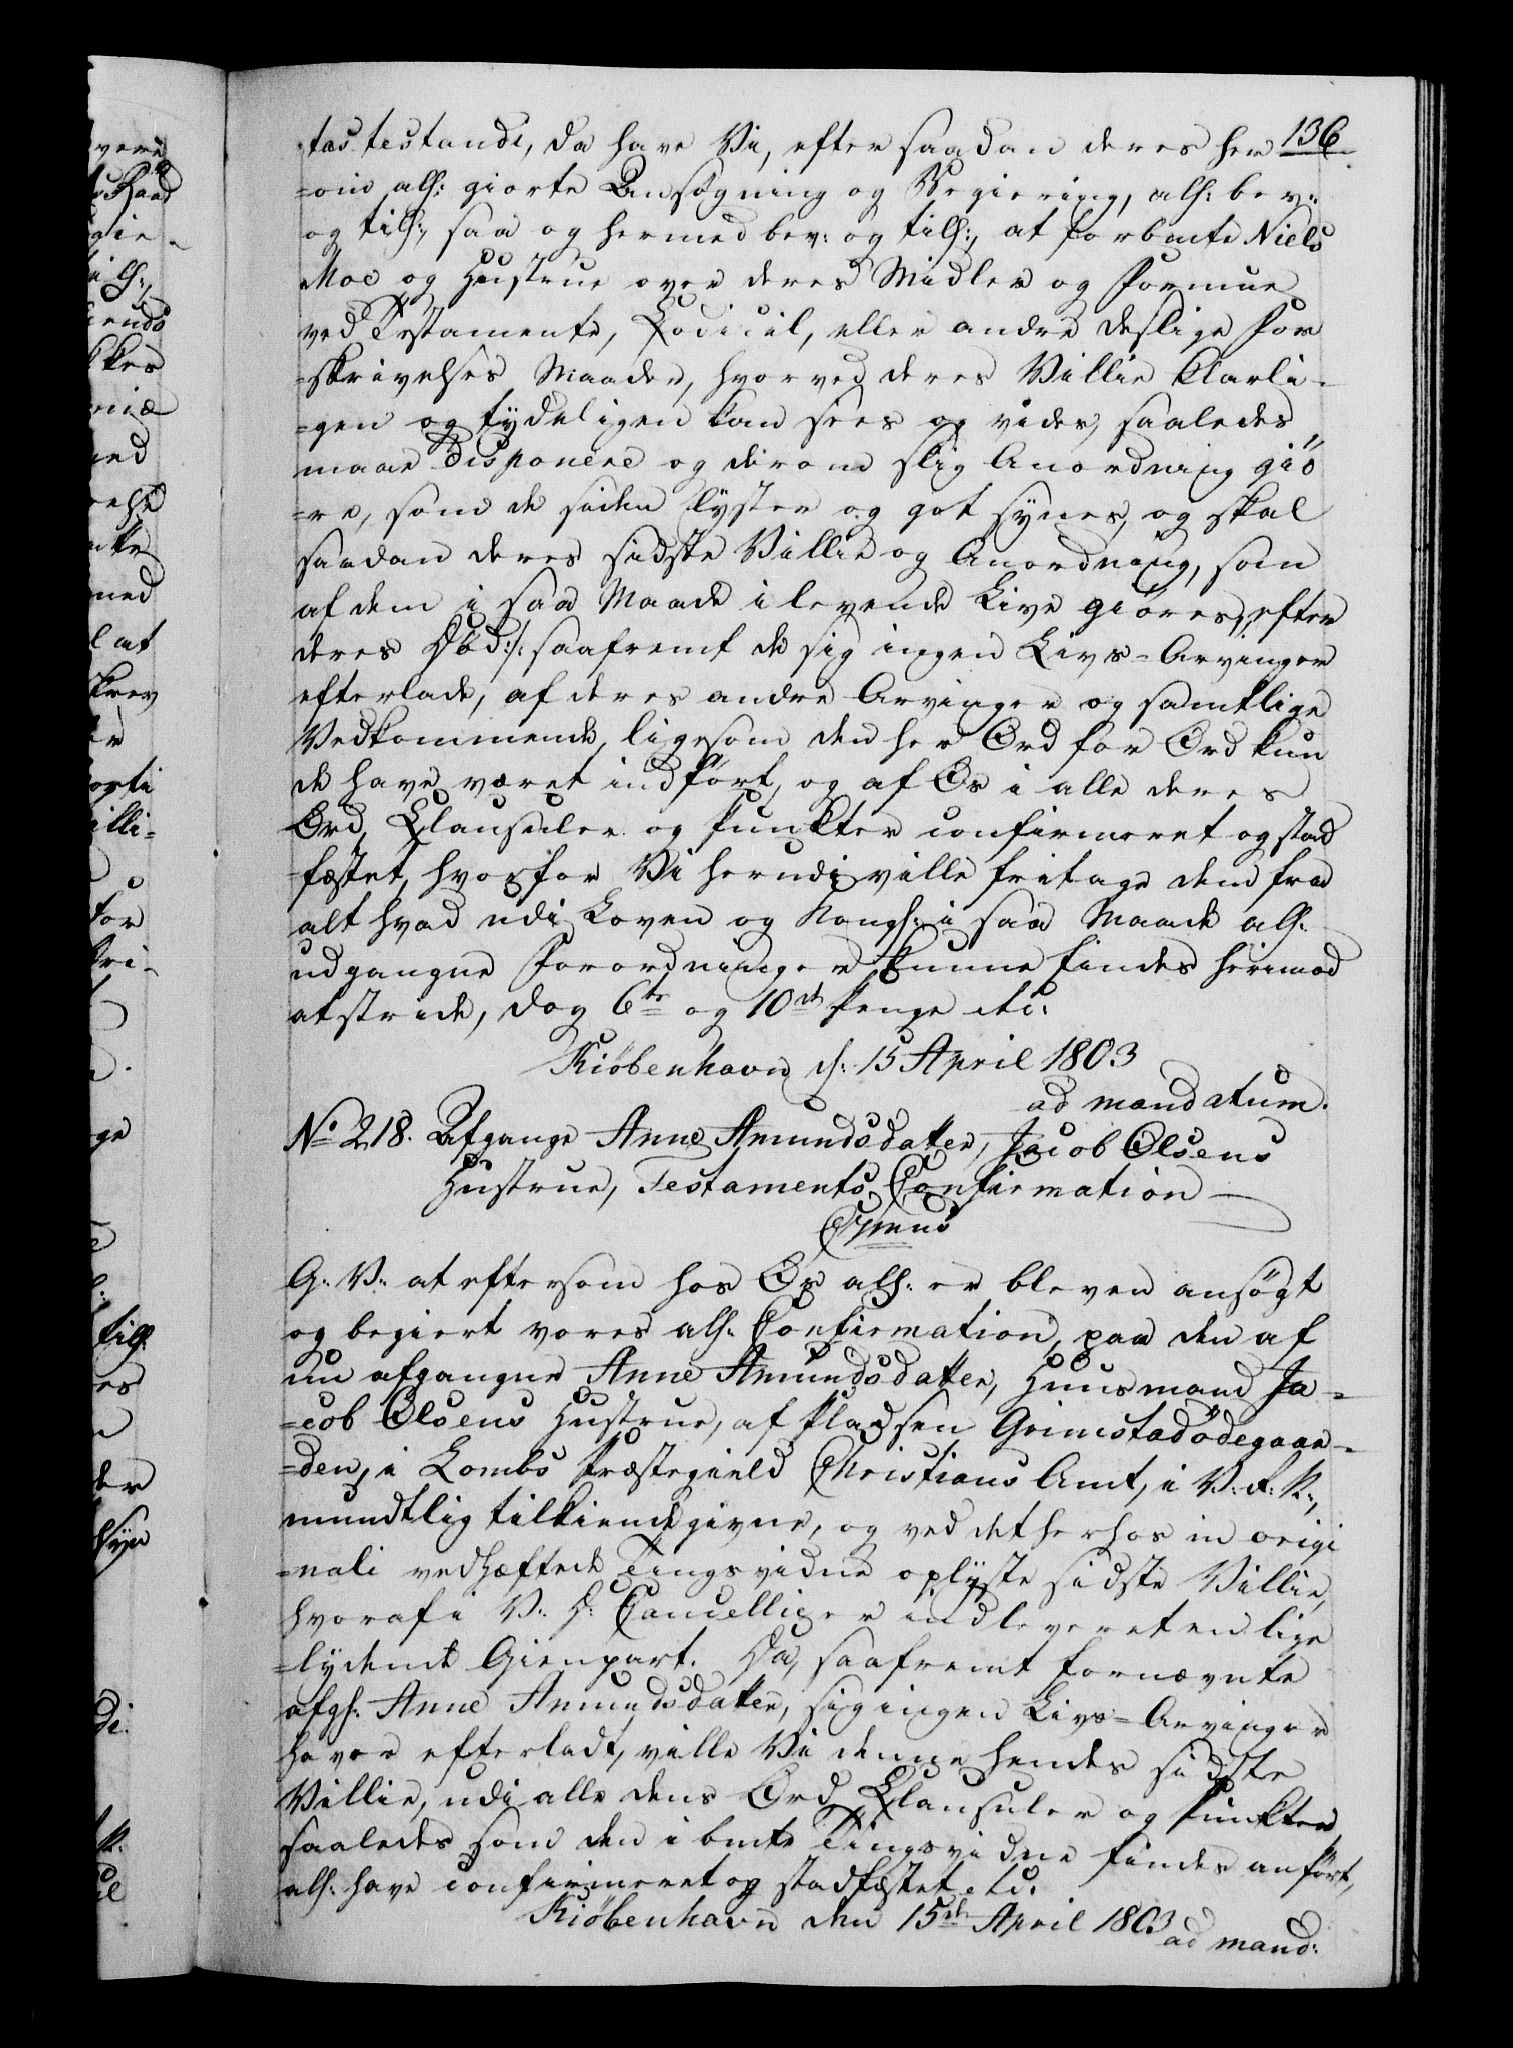 136
tas testandi, da have Vi, efter saadan deres her
=om all: giorte Ansøgning og Begiering, all: bev:
og till:, saa og hermed bev: og till:, at forbmte Niels
Moe og Hustrue over deres Midler og Formue
ved Testamente, Codicil, eller andre deslige For
=skrivelses Maader, hvorved deres Villie klarli=
=gen og tydeligen kan sees og vides, saaledes
maae disponere og derom slig Anordning giö
=re, som de siden lyster og got synes, og skal
saadan deres sidste Villie og Anordning, som
af dem i saa Maade i levende Live giöres, efter
deres Död :/: saafremt de sig ingen Livs=Arvinger
efterlade, af deres andre Arvinger og samtlige
Vedkommende, ligesom den her Ord for Ord kun
de have været indfört, og af Os i alle deres
Ord, Clausuler og Punkter confirmeret og stad
fæstet, hvorfor Vi herudi ville fritage dem fra
alt hvad udi Loven og Kongl: i saa Maade all:
udgangne Forordninger kunne findes herimod
at stride, dog 6te og 10de Penge etc:
Kiöbenhavn d: 15 April 1803
ad mandatum.
No 218. Afgangne Anne Amundsdatter, Jacob Olsens
Hustrue, Testaments Confirmation
G: V: at eftersom hos Os all: er bleven ansögt
og begiert vores all: Confirmation, paa den af
nu afgangne Anne Amundsdatter, Huusmand Ja=
=cob Olsens Hustrue, af Pladsen Grimstadödegaar=
=den, i Lombs Præstegield Christians Amt, i V: R: N:,
mundtlig tilkiendegivne, og ved det herhos in origi
=nali vedhæftede Tingsvidne oplyste sidste Villie,
hvoraf i V: D: Cancellie er indleveret en lige
=lydende Gienpart. Da, saafremt fornævnte
afgl: Anne Amundsdatter, sig ingen Livs=Arvinger
haver efterladt, ville Vi denne hendes sidste
Villie, udi alle dens Ord Clausuler og Punkter,
saaledes som den i bmte Tingsvidne findes anfört,
all: have confirmeret og stadfæstet. etc:
Kiöbenhavn den 15de April 1803
ad mand: